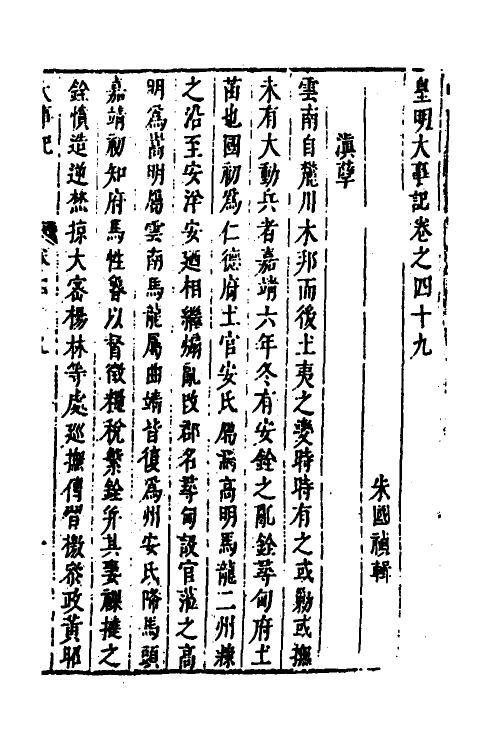 皇明大事記卷之四十九
朱國禎輯
滇孽
雲南自麓川木邦而後土夷之變時時有之或勦或撫
未有大動兵者嘉靖六年冬有安銓之亂銓尋甸府土
苗也國初爲仁德府土官安氏屬嵩明馬龍二州隸
之沿至安洋安迺相繼煽亂改郡名尋甸設官蒞之高
明爲嵩明屬雲南馬龍屬曲靖皆復爲州安氏降馬頭
嘉靖初知府馬性魯以督徵糧稅繫銓并其妻裸撻之
銓憤造逆焚掠大窩楊林等處廵撫傅習檄叅政黃昭
大事記